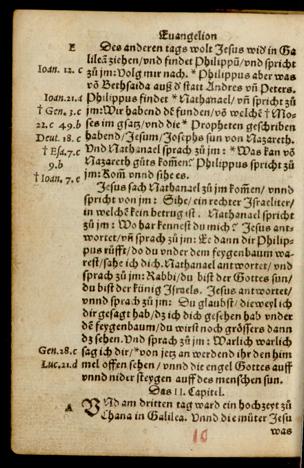 Euangelion
E
Des anderen tags wolt Jesus wid in Ga
lileā ziehen/vnd findet Philippū/vnd spricht
Ioan. 12. c
zů jm: Volg mir nach. * Philippus aber was
vō Bethsaida auß ď statt Andres vñ Peters.
Ioan. 21. d
Philippus findet * Nathanael/ vñ spricht zů
† Gen. 3. c
jm: Wir habend dē funden/vō welchē † Mo-
22. c 49. b
ses im gsatz/vnd die * Propheten geschriben
Deut. 18. c
habend/Jesum/Josephs sun von Nazareth.
† Esa. 7. c
Vnd Nathanael sprach zů jm: * Was kan vō
9. b
Nazareth gůts komēn? Philippus spricht zů
† Ioan. 7. c
jm: Kom̄ vnnd sihe es.
Jesus sach Nathanael zů jm komēn/ vnnd
spricht von jm: Sihe/ ein rechter Israeliter/
in welchē kein betrug ist. Nathanael spricht
zů jm: Wo har kennest du mich? Jesus ant-
wortet/vñ sprach zů jm: Ee dann dir Philip-
pus růfft/do du vnder dem feygenbaum wa-
rest/sahe ich dich. Nathanael antwortet/ vnd
sprach zů jm: Rabbi/du bist der Gottes sun/
du bist der künig Israels. Jesus antwortet/
vnnd sprach zů jm: Du glaubst/dieweyl ich
dir gesagt hab/dz ich dich gesehen hab vnder
dē feygenbaum/du wirst noch grössers dann
dz sehen. Vnd sprach zů jm: Warlich warlich
Gen. 28. c
sag ich dir/*von jetz an werdend ihr den him
Luc. 21. d
mel offen sehen/ vnnd die engel Gottes auff
vnnd nider steygen auff des menschen sun.
Das II. Capitel.
A
Vnd am dritten tag ward ein hochzeyt zů
Chana in Galilea. Vnnd die můter Jesu
was
10